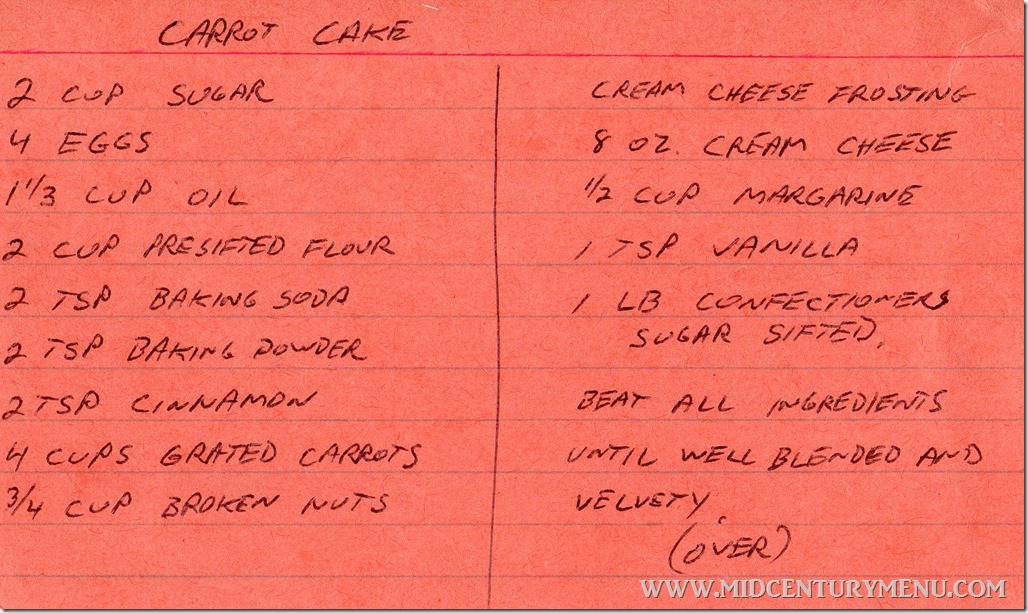 CARROT CAKE
2 CUP SUGAR
4 EGGS
1 1/3 CUP OIL
2 CUP PRESIFTED FLOUR
2 TSP BAKING SODA
2 TSP BAKING POWDER
2 TSP CINNAMON
4 CUPS GRATED CARROTS
3/4 CUP BROKEN NUTS
CREAM CHEESE FROSTING
8 OZ. CREAM CHEESE
1/2 CUP MARGARINE
1 TSP VANILLA
1 LB CONFECTIONERS
SUGAR SIFTED.
BEAT ALL INGREDIENTS
UNTIL WELL BLENDED AND
VELVETY.
(OVER)
WWW.MIDCENTURYMENU.COM